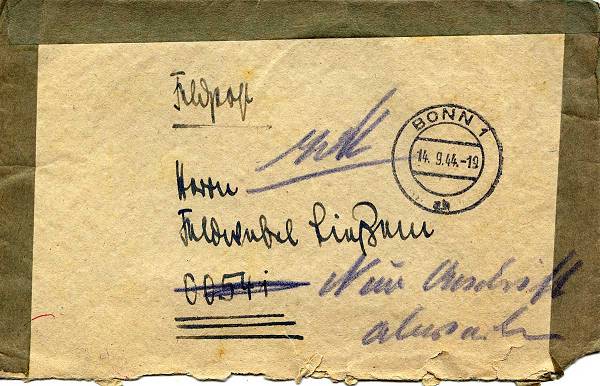 Feldpost
zurück
BONN 1
14.9.44.-19
Herrn
Feldwebel Ließem
00541
Neue Anschrift
abwarten